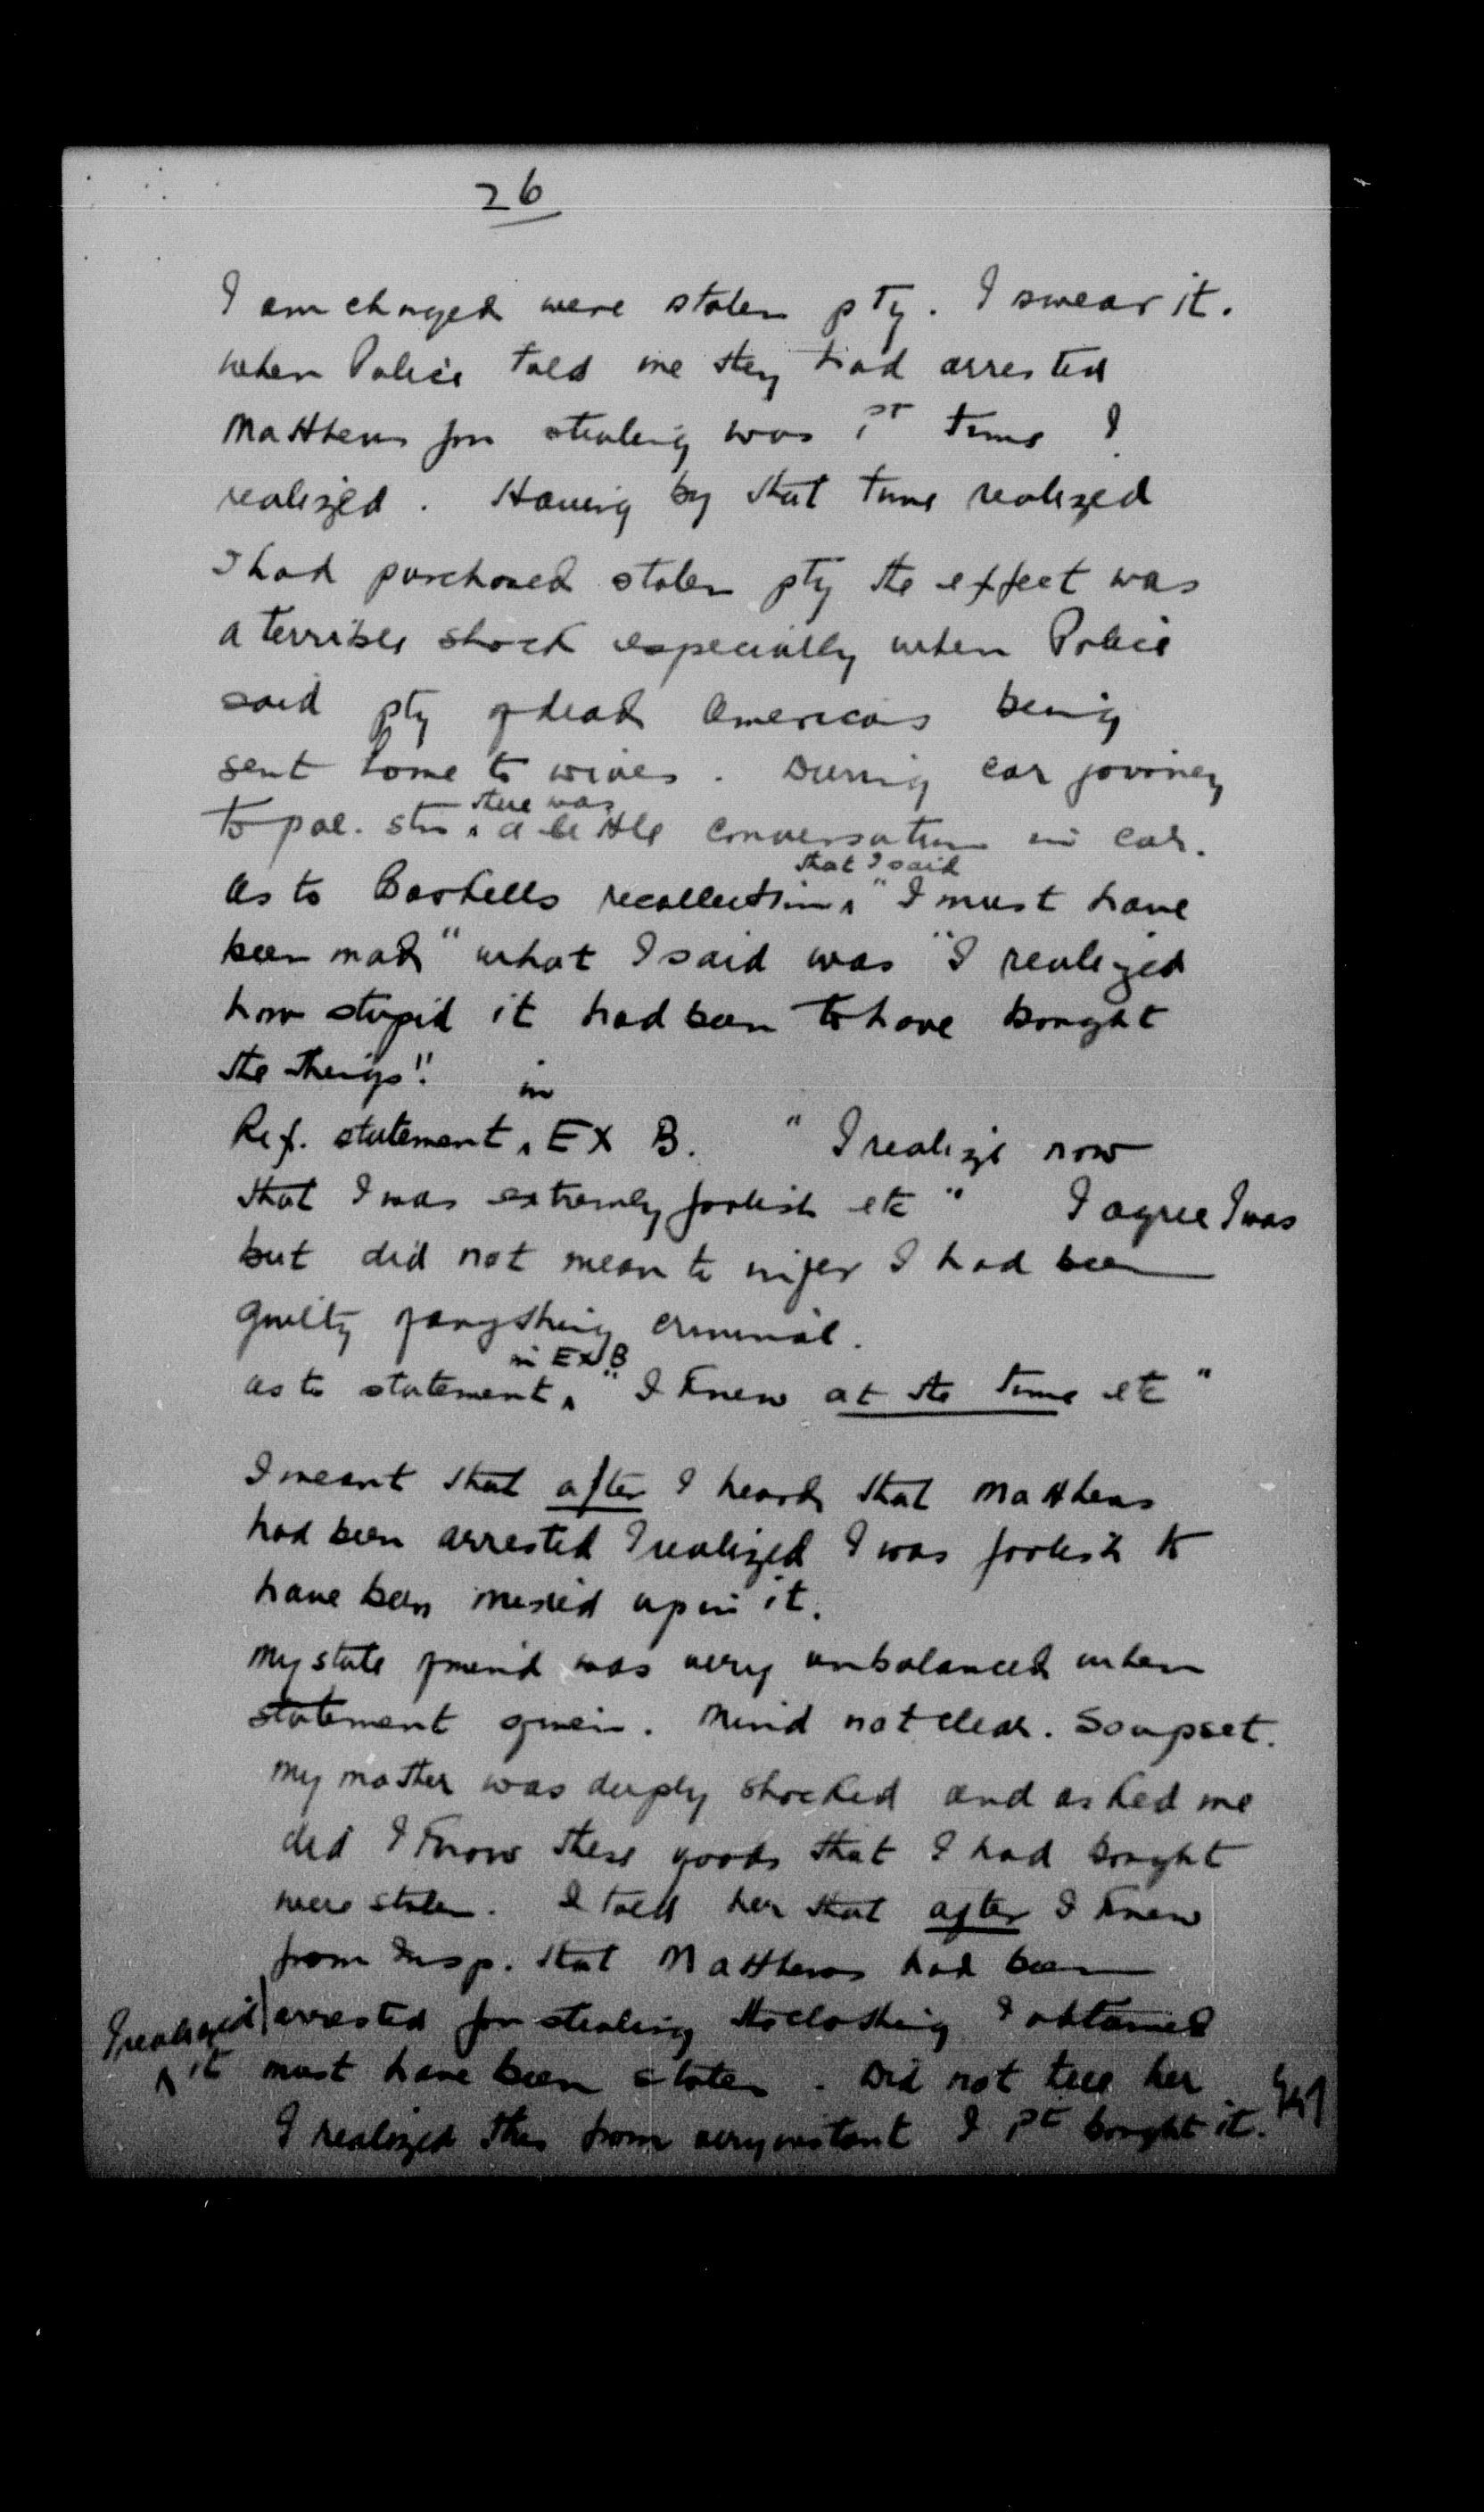 26
I am charged were stolen pty. I swear it.
when Police told me they had arrested
Matthews for stealing was 1st time I
realized. Having by that time realized
I had purchased stolen pty the effect was
a terrible shock especially when Police
said pty of dead Americans being
sent home to wives. During car journey
there was
to pol. stn ‸ a little conversation in car.
that I said
As to Baskells recollection ‸ "I must have
been mad" what I said was "I realized
how stupid it had been to have bought
the things".
in
Ref. statement ‸ EX B. "I realize now
that I was extremly foolish etc" I agree I was
but did not mean to infer I had been
guilty of anything criminal.
in EX B
as to statement ‸ "I knew at the time etc"
I meant that after I heard that Matthews
had been arrested I realized I was foolish to
have been mixed up in it.
My state of mind was very unbalanced when
statement given. Mind not clear. So upset.
My mother was deeply shocked and asked me
did I know these goods that I had bought
were stolen. I told her that after I knew
from Insp. that Matthews had been
arrested for stealing the clothing I obtained
I realized
‸ it must have been stolen. Did not tell her
I realized this from very instant I 1st bought it.